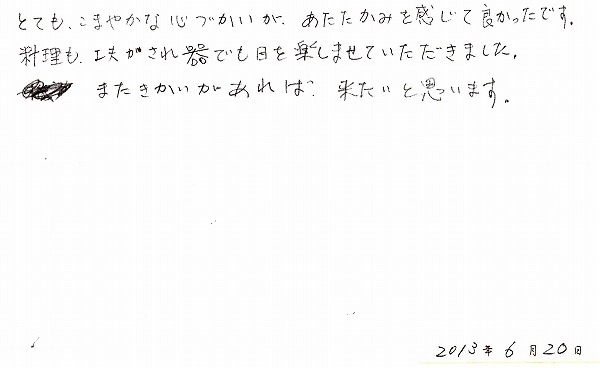 とても、こまやかな心づかいが、あたたかみを感じて良かったです。
料理も、工夫がされ器でも目を楽しませていただきました。
またきかいがあれば、来たいと思います。
2013年6月20日